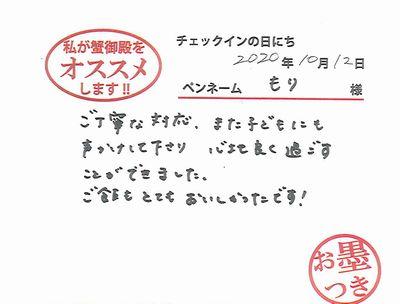 私が蟹御殿を
オススメ
します!!
チェックインの日にち
2020年10月12日
ペンネーム もり 様
ご丁寧な対応、また子どもにも
声かけして下さり 心まで良く過ごす
ことができました。
ご飯もとてもおいしかったです!
お墨
つき